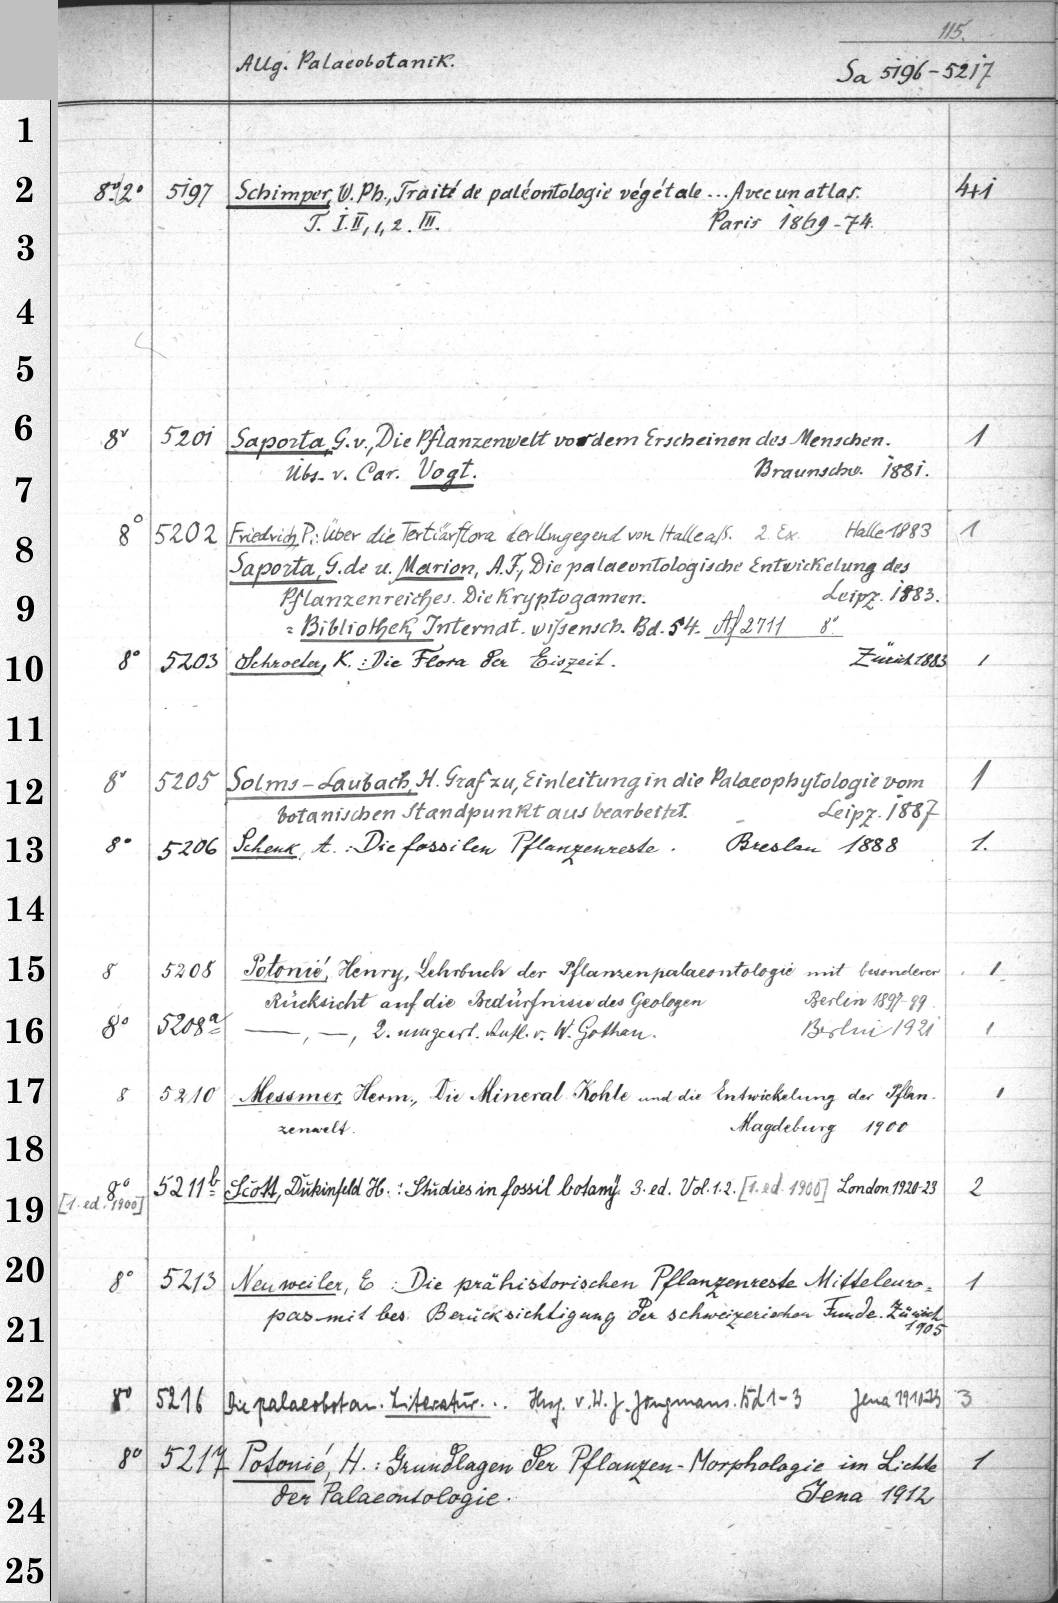 115.
Allg. Palaeobotanik. Sa 5196-5217
1
2 8°/2° 5197 Schimper, W. Ph., Traité de paléontologie végétale ... Avec un atlas. 4+1
T. I. II, 1, 2. III. Paris 1869-74.
3
4
5
6 8° 5201 Saporta, G. v., Die Pflanzenwelt vor dem Erscheinen des Menschen. 1
Übs. v. Car. Vogt. Braunschw. 1881.
7
8 8° 5202 Friedrich, P.: Über die Tertiärflora der Umgegend von Halle a/S. 2. Ex. Halle 1883 1
Saporta, G. de u. Marion, A. F., Die palaeontologische Entwickelung des
9 Pflanzenreiches. Die Kryptogamen. Leipz. 1883.
= Bibliothek, Internat. wissensch. Bd. 54. Af 2711 8°
10 8° 5203 Schroeter, K.: Die Flora der Eiszeit. Zürich 1883 1
11
12 8° 5205 Solms-Laubach, H. Graf zu, Einleitung in die Palaeophytologie vom 1
botanischen Standpunkt aus bearbeitet. Leipz. 1887
13 8° 5206 Schenk, A.: Die fossilen Pflanzenreste. Breslau 1888 1.
14
15 8 5208 Potonié, Henry, Lehrbuch der Pflanzenpalaeontologie mit besonderer 1
Rücksicht auf die Bedürfnisse des Geologen Berlin 1897-99.
16 8° 5208a ——, —, 2. umgearb. Aufl. v. W. Gothan. Berlin 1921 1
17 8 5210 Messmer, Herm., Die Mineral Kohle und die Entwickelung der Pflan- 1
18 zenwelt. Magdeburg 1900
8° 5211b Scott, Dukinfeld H.: Studies in fossil botany. 3. ed. Vol. 1. 2. [1. ed. 1900] London 1920-23 2
19 [1. ed. 1900]
20 8° 5213 Neuweiler, E.: Die prähistorischen Pflanzenreste Mitteleuro= 1
pas mit bes. Berücksichtigung der schweizerischen Funde. Zürich
21 1905
22 8° 5216 Die palaeobotan. Literatur... Hsg. v. W. J. Jongmans. Bd 1-3 Jena 1910-13 3
23 8° 5217 Potonié, H.: Grundlagen der Pflanzen-Morphologie im Lichte 1
24 der Palaeontologie. Jena 1912
25